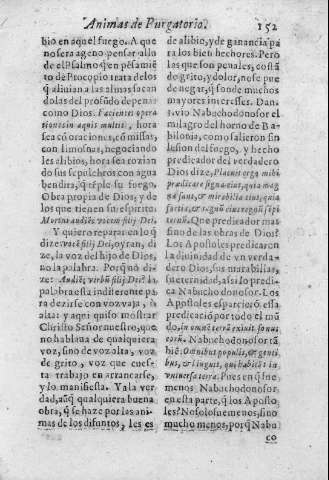 Animas de Purgatorio. 152
bio en aquel fuego. A que
no serà ageno pensar allo
de el Psalmo q̃ en pẽsamiẽ
to de Procopio trata de los
q̃ aliuian a las almas sacan
dolas del profũdo de penar
como Dios. Facientem opera
tionem in aquis multis, hora
sea cõ oraciones, cõ missas,
con limosnas, negociando
les alibios, hora sea rozian
do sus sepulchros con agua
bendita, q̃ tẽple su fuego
Obra propia de Dios, y de
los que tienen su espiritu.
Mortui audiẽt vocem filij Dei.
Y quiero reparar en lo q̃
dize: vocẽ filij Dei, oyran, di
ze, la voz del hijo de Dios,
no la palabra. Porq̃ no di
ze: Audiẽt verbũ filij Dei? La
palabra està indiferente pa
ra dezirse con voz vaja, ò
alta: y aqui quiso mostrar
Christo Señor nuestro, que
no hablaua de qualquiera
voz, sino de voz alta, voz
de grito, y voz que cuesta
trabajo en arrancarse,
y lo manifiesta. Y a la ver
dad, aũq̃ qualquiera buena
obra, q̃ se haze por las ani
mas de los difuntos, les es
de alibio, y de ganancia pa
ra los bien hechores. Pero
las que son penales, costã
do grito, y dolor, no se pue
de negar, q̃ son de muchos
mayores interesses. Dan
Iuio Nabuchodonosor el
milagro del horno de Ba
bilonia, como salieron sin
lesion del fuego, y hecho
predicador del verdadero
Dios dize, Placuit ergo mihi
prædicare signa eius, quia mag
na sunt, & mirabilia eius, quia
fortia, & regnũ eius regnũ sẽpi
ternum. Que predicador mas
fino de las obras de Dios?
Los Apostoles predicaron
la diuinidad de vn verda
dero Dios, sus marabillas,
su eternidad, assi lo predi
ca Nabuchodonosor. Los
Apostoles esparcierõ esta
predicaciõ por todo el mũ
do, in omnẽ terrã exiuit sonus
eorũ. Nabuchodonosor tã
biẽ: Omnibus populis, & gẽti
bus, & linguis, qui habitãt in
vniuersa terra. Pues en q̃ fue
menos Nabuchodonosor
en esta parte, q̃ los Aposto
les? No solo fue menos, sino
mucho menos, porq̃ Nabu
co